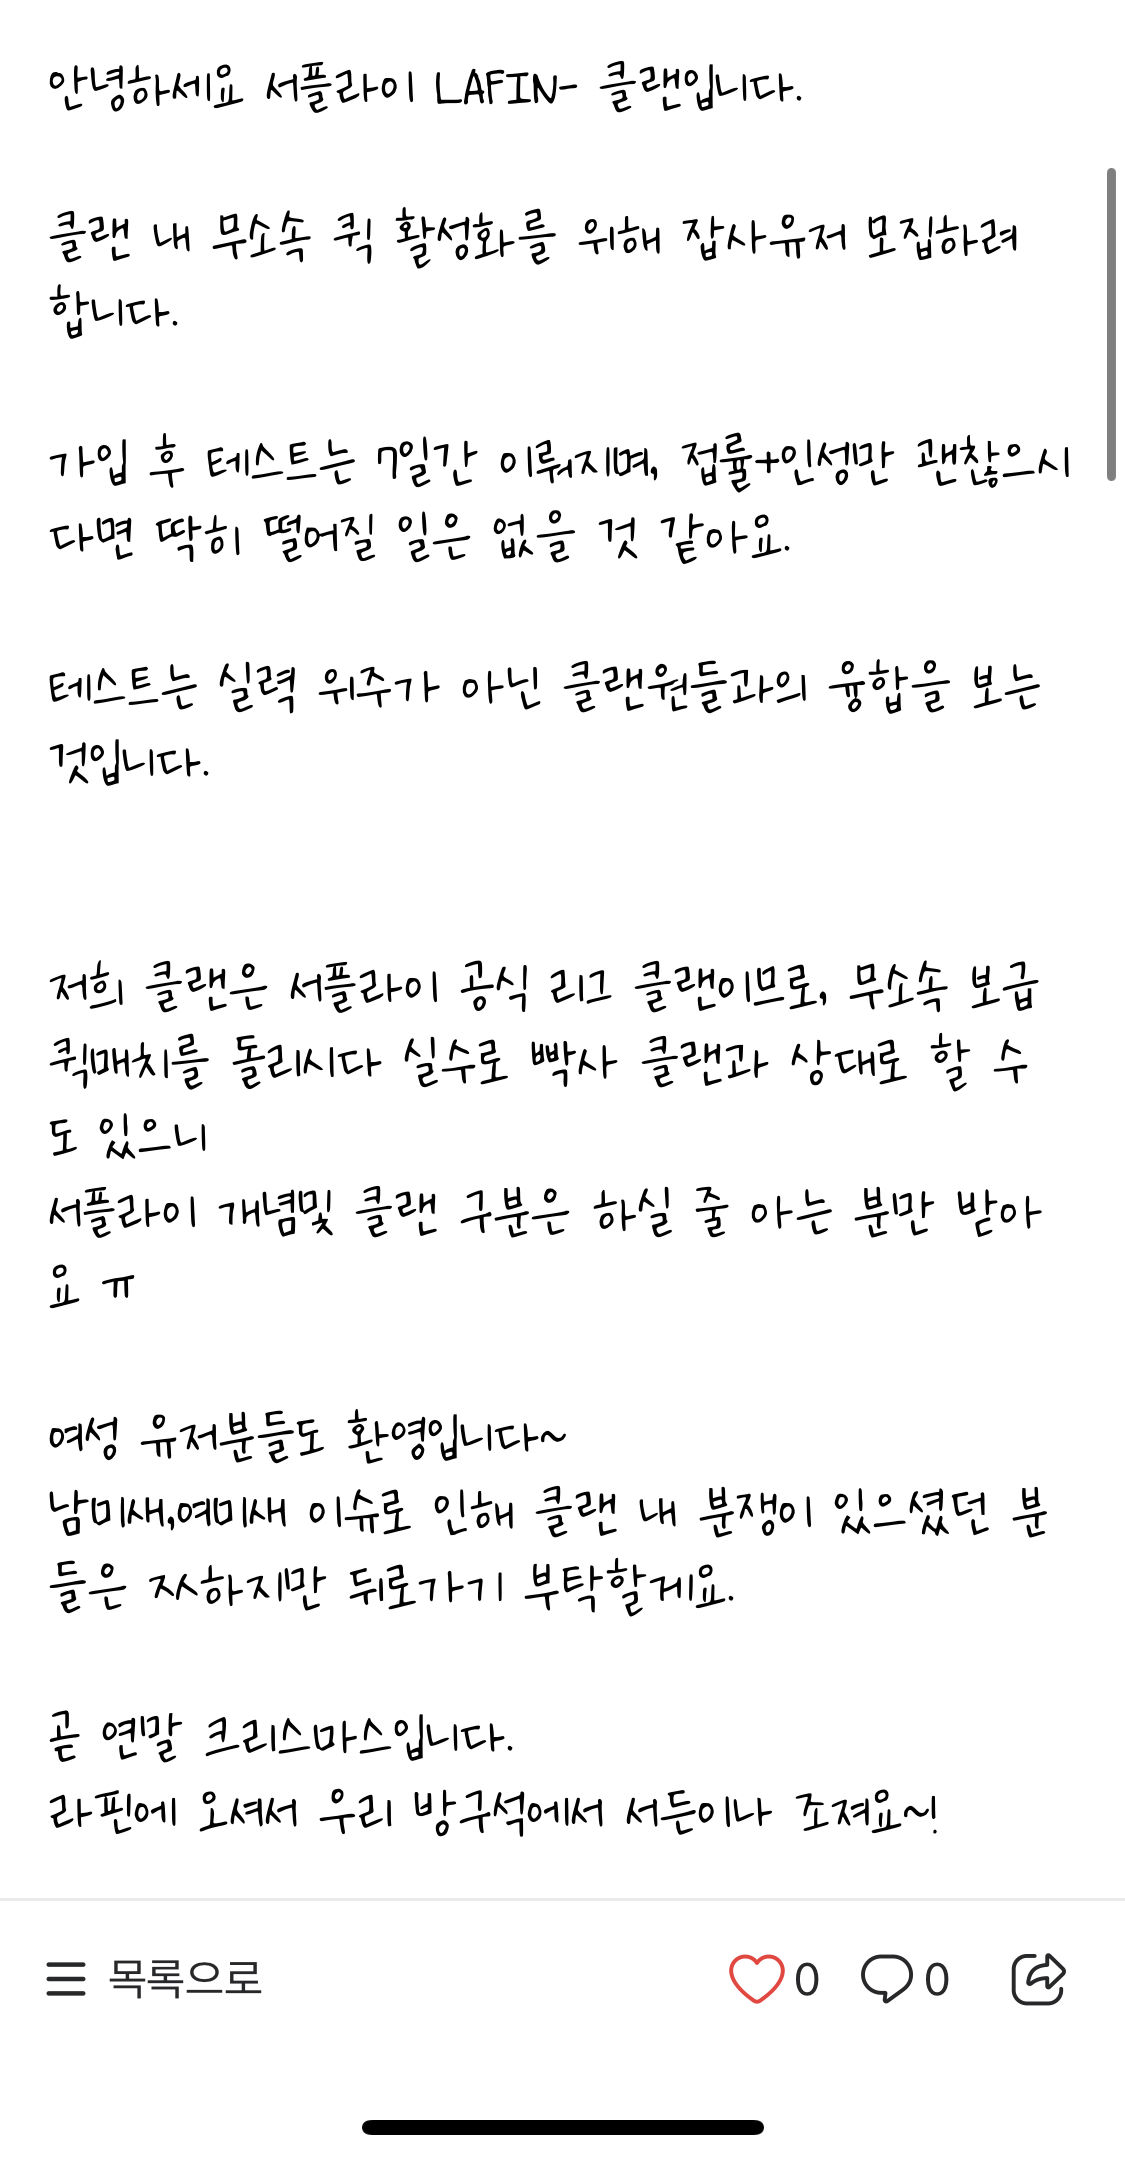 안녕하세요 서플라이 LAFIN- 클랜입니다.
클랜 내 무소속 퀵 활성화를 위해 잡사유저 모집하려
합니다.
가입 후 테스트는 7일간 이뤄지며, 접률+인성만 괜찮으시
다면 딱히 떨어질 일은 없을 것 같아요.
테스트는 실력 위주가 아닌 클랜원들과의 융합을 보는
것입니다.
저희 클랜은 서플라이 공식 리그 클랜이므로, 무소속 보급
퀵매치를 돌리시다 실수로 빡사 클랜과 상대로 할 수
도 있으니
서플라이 개념및 클랜 구분은 하실 줄 아는 분만 받아
요 ㅠ
여성 유저분들도 환영입니다~
남미새,여미새 이슈로 인해 클랜 내 분쟁이 있으셨던 분
들은 ㅈㅅ하지만 뒤로가기 부탁할게요.
곧 연말 크리스마스입니다.
라핀에 오셔서 우리 방구석에서 서든이나 조져요~!
목록으로
0 0